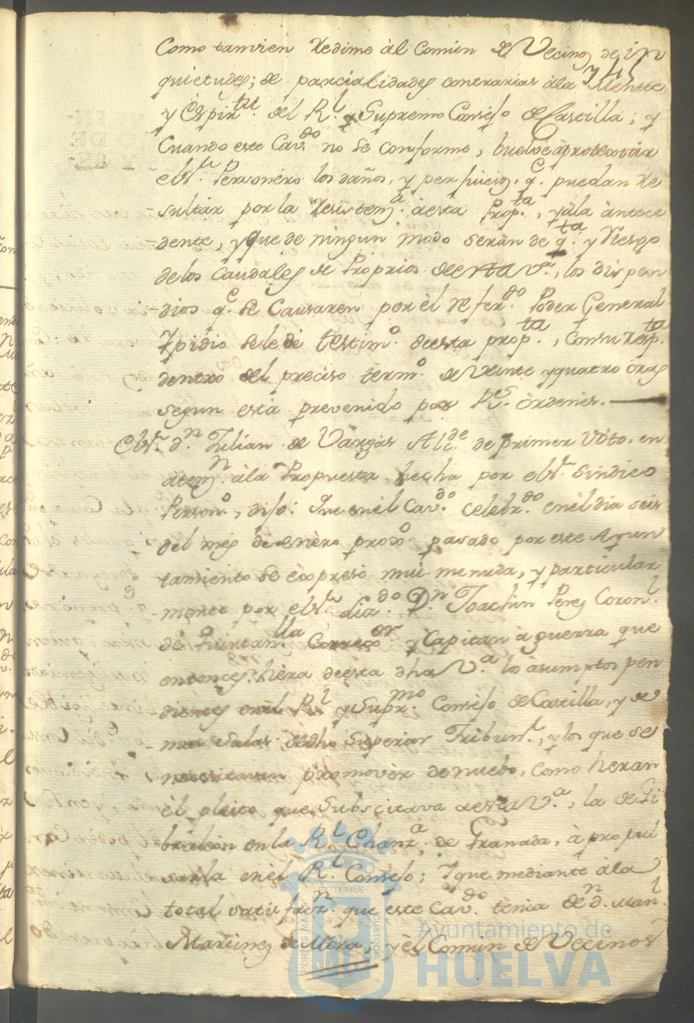 Como tamvien redime àl Comun de Vecinos de in
quietudes; de parcialidades contrarias àla Mente
y Espirtu. del Rl. y Supremo Consejo de Castilla; y
Cuando este Cavdo. no se conforme, buelve à protestar
elSr. Personero los daños, y perjuicios. qe. puedan re
sultar por la resistena. àesta Propta., y àla àntece
dente, y que de ningun modo seràn de qta. y riesgo
delos Caudales de Proprios de esta Va., los dispen
dios qe. se Causaren por el referdo. Poder General
Ypidio sele dè testimo. de esta propta., Consu respta.
dentro del preciso termo. de veinte y quatro oras
segun està prevenido por Rs. òrdenes.
ElSr. dn. Julian de Vargas Alde. de primer Voto, en
atenn. àla Propuesta hecha por elSr. Sindico
Persono., dijo: Que en èl Cavdo. celebrdo. en èl dia seis
del mes de enèro proxo. pasado por este Ayun
tamiento se espresò mui menuda, y particular
mente por elSr. Liado. Dn. Joachin Perez Coronl.
de Quintanlla. Corregor. y Capitan à guerra que
entonces hèra de esta dha Va. los asumptos pen
dientes en èl Rl. y Suprmo. Consejo de Castilla, y de
mas Salas dedho Superior Tribunl., y los que se
necesitavan promover de nuebo, como heran
èl pleito que Subscitava à esta Va., la de Gi
bralèon en la Rl. Chanza. de Granada, à propul
sarla en èl Rl. Consejo; Y que mediante àla
total satisfacn. que este Cavdo. tenia de dn. Manl.
Martinez de Mora, y èl Comun de Vecinos
Ayuntamiento de
HUELVA